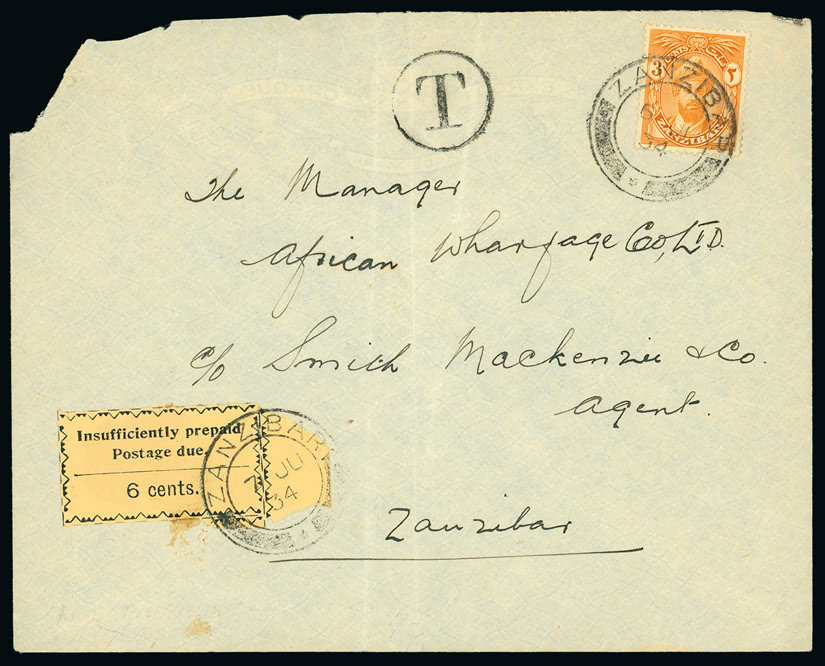 T
3 CENTS ٣
ZANZIBAR
ZANZIBAR
34
The Manager
African Wharfage Co, LTD.
c/o Smith Mackenzie & Co.
Agent.
Insufficiently prepaid
Postage due.
6 cents.
ZANZIBAR
7 JU
34
Zanzibar